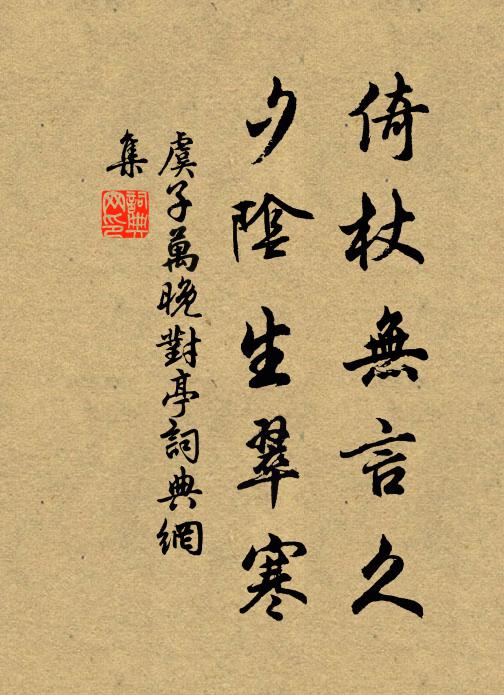 倚杖無言久
夕陰生翠寒
虞子萬晚對亭詞典網
集
詞典
网印